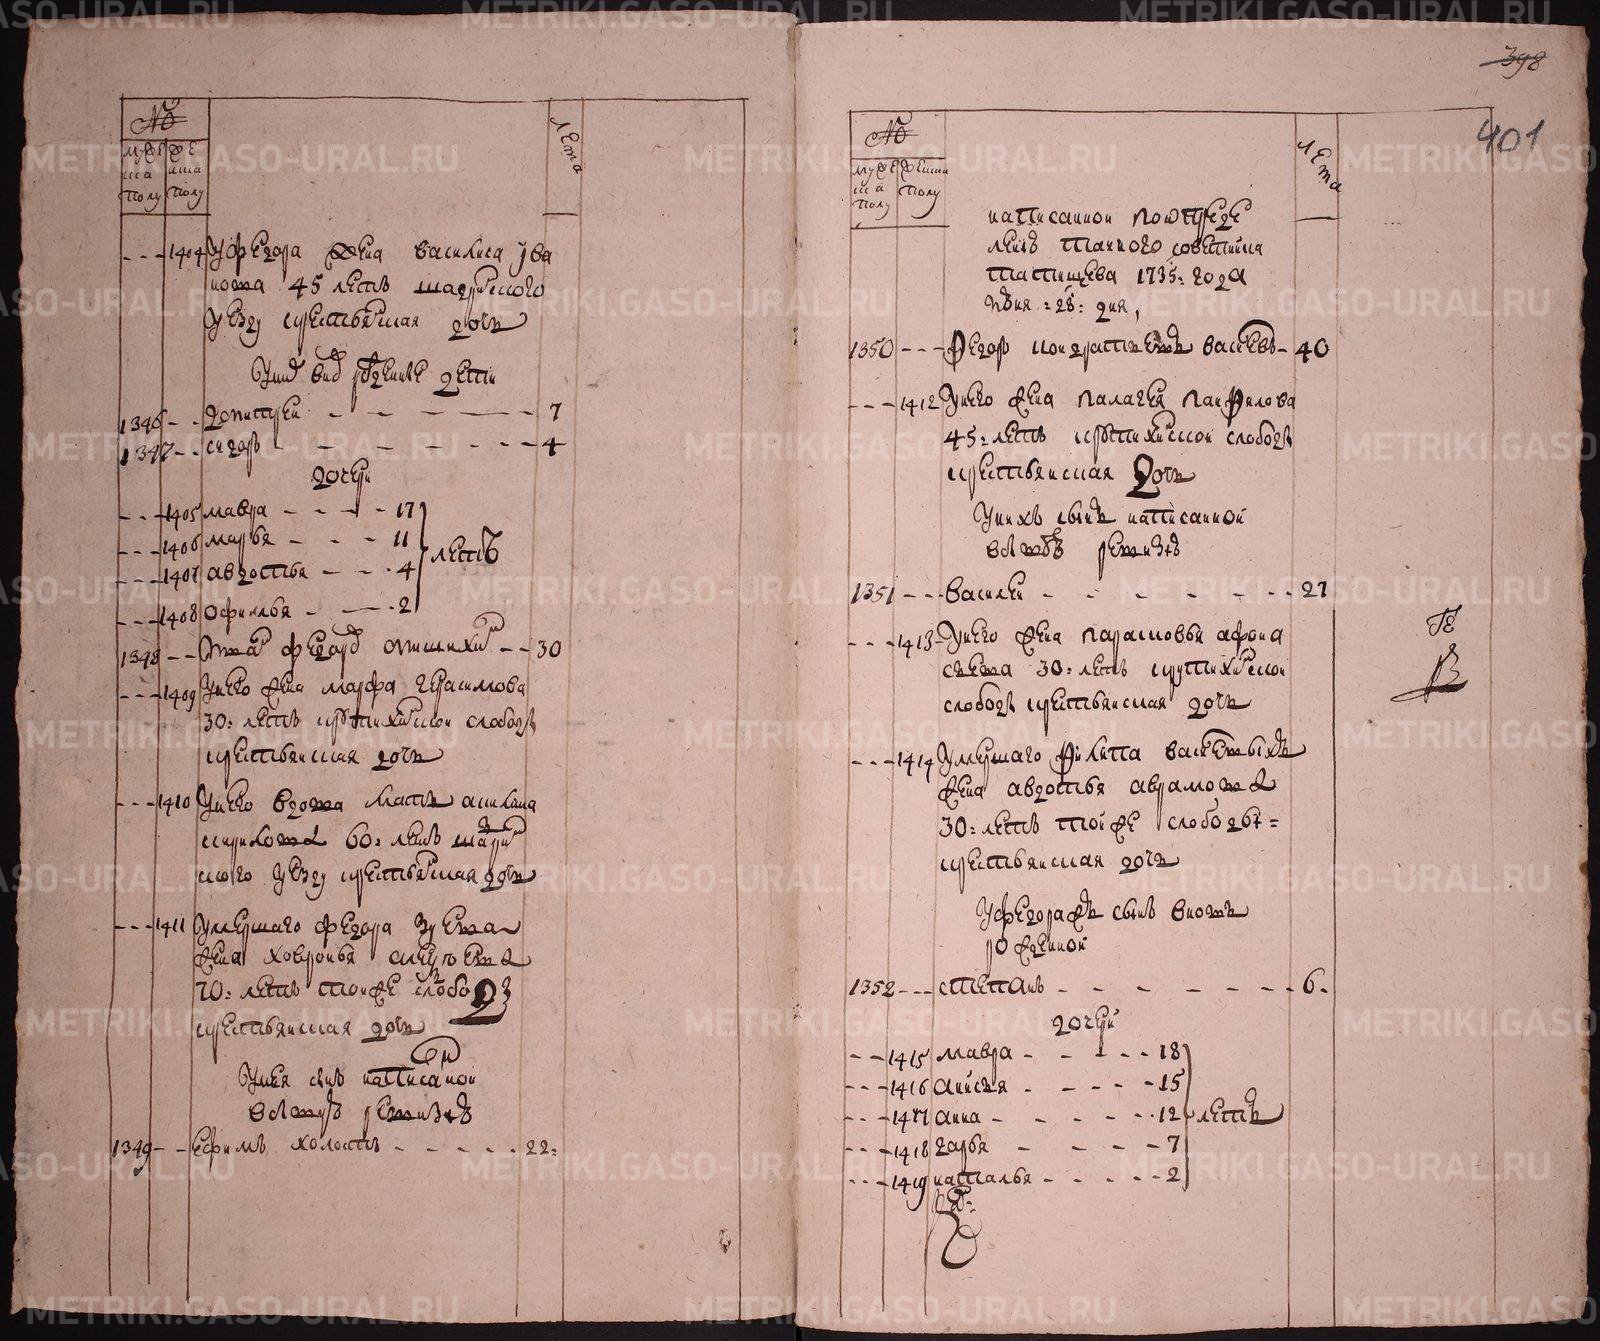 №
муже
ска
полу
же
нска
полу
лета
1404 У Федора жена Василиса Ива
нова 45 летъ шадринского
уезду крестьянская дочь
У нихъ вновь рожденные дети
1346 Дмитрей 7
1347 Сидоръ 4
дочери
1405 Мавра 17
1406 Марья 11
летъ
1407 Авдотья 4
1408 Офимья 2
1348 Федоръ 30
1409 У него жена Марфа Герасимова
30: летъ крутихинскои слободы
крестьянская дочь
1410 У него вдова мать Акилина
60: летъ шадрин
ского уезду крестьянская дочь
1411 У умершаго Федора Зуева
жена Ховронья
70: летъ тои же слободы
крестьянская дочь
У нея сынъ написанной
в ревизіе
1349 Ефимъ холостъ 22:
398
401
№
муже
ска
полу
женска
полу
лета
написанной по отпуске
тайного советника
Татищева 1735: года
июня :28: дня,
1350 Федоръ Кондратьевъ 40
1412 У него жена Палагея Панфилова
45: летъ крутихинской слободы
крестьянская дочь
У нихъ сынъ написанной
в ревизіе
1351 Василей 27
1413 У него жена Парасковья Афона
сьева 30: летъ крутихинской
слободы крестьянская дочь
1414 У умершаго Филипа
жена Авдотья Аврамова
30: летъ той же слободы
крестьянская дочь
У Федора же сынъ вновь
рожденной
1352 Степанъ 6.
дочерей
1415 Мавра 18
1416 Анисья 15
1417 Анна 12 летъ
1418 Дарья 7
1419 Наталья 2
METRIKI.GASO-URAL.RU